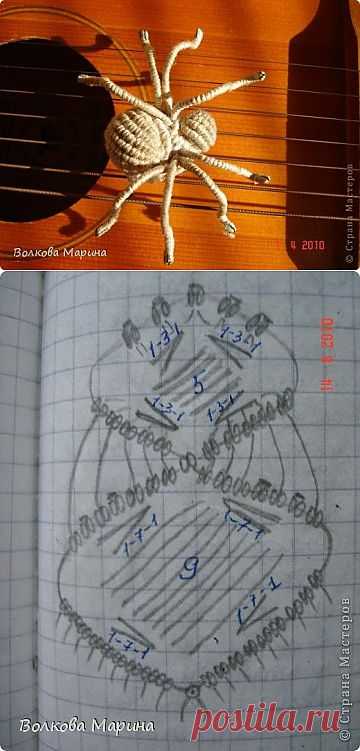 © Страна Мастеров
4 2010
Волкова Марина
14 2010
1-3-1 1-3-1
5
1-3-1 1-3-1
1-7-1 1-7-1
9
1-7-1 1-7-1
© Страна Мастеров
Волкова Марина
postila.ru